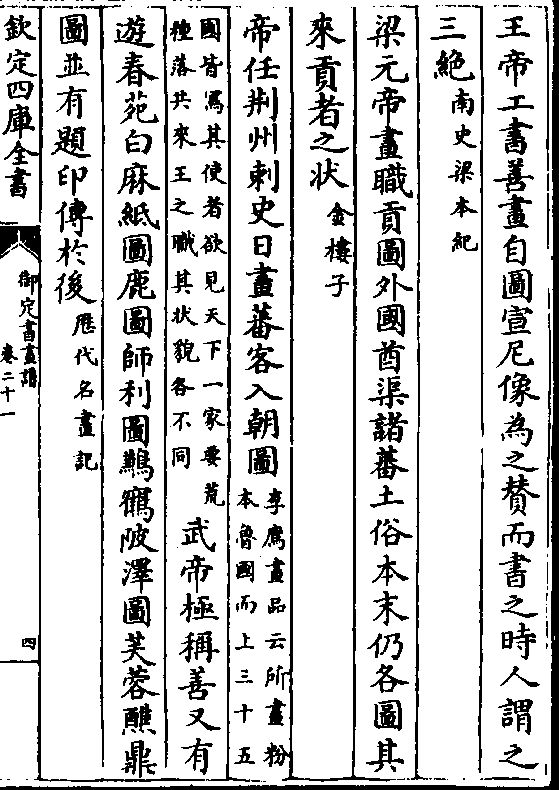 王帝工書善畫自圖宣尼像為之贊而書之時人謂之
三絶南史梁本紀
梁元帝畫職貢圖外國酋渠諸蕃土俗本末仍各圖其
來貢者之状金樓子
帝任荆州刺史日畫蕃客入朝圖李廌畫品云所畫粉
本魯國而上三十五
國皆冩其使者欲見天下一家要荒
種落共來王之職其状貌各不同武帝極稱善又有
遊春苑白麻紙圖鹿圖師利圖鶼鶴陂澤圖芙蓉醮鼎
圖並有題印傳於後歴代名畫記
欽定四庫全書
御定書畫譜
卷二十一
四